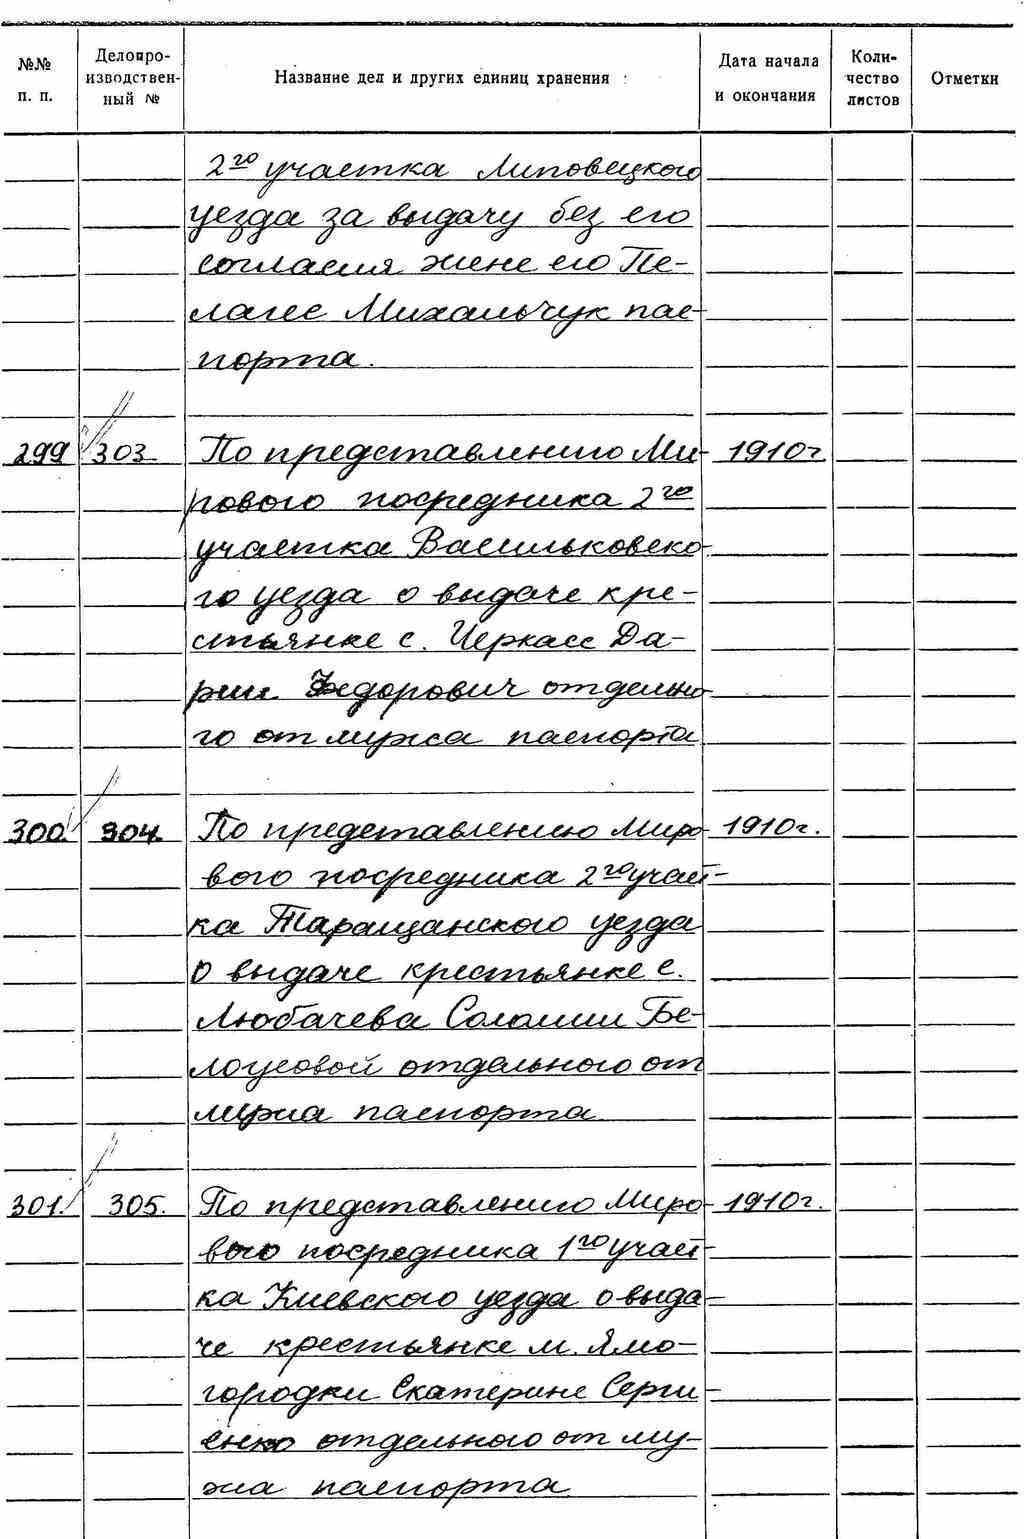 №№ п. п. Делопро-изводствен-ный № Название дел и других единиц хранения Дата начала и окончания Коли-чество листов Отметки
2го участка Липовецкого
уезда за выдачу без его
согласия жене его Пе-
лагее Михальчук пас-
порта.
299 303 По представлению Ми- 1910г
рового посредника 2го
участка Васильковско-
го уезда о выдаче кре-
стьянке с. Черкасс Да-
рии Федорович отдельно-
го от мужа паспорта
300. 304. По представлению Миро- 1910г.
вого посредника 2го участ-
ка Таращанского уезда
о выдаче крестьянке с.
Любачева Соломии Бе-
лоусовой отдельного от
мужа паспорта
301. 305. По представлению Миро- 1910г.
вого посредника 1го участ-
ка Киевского уезда о выда-
че крестьянке м. Ямо-
городки Екатерине Серги-
енко отдельного от му-
жа паспорта